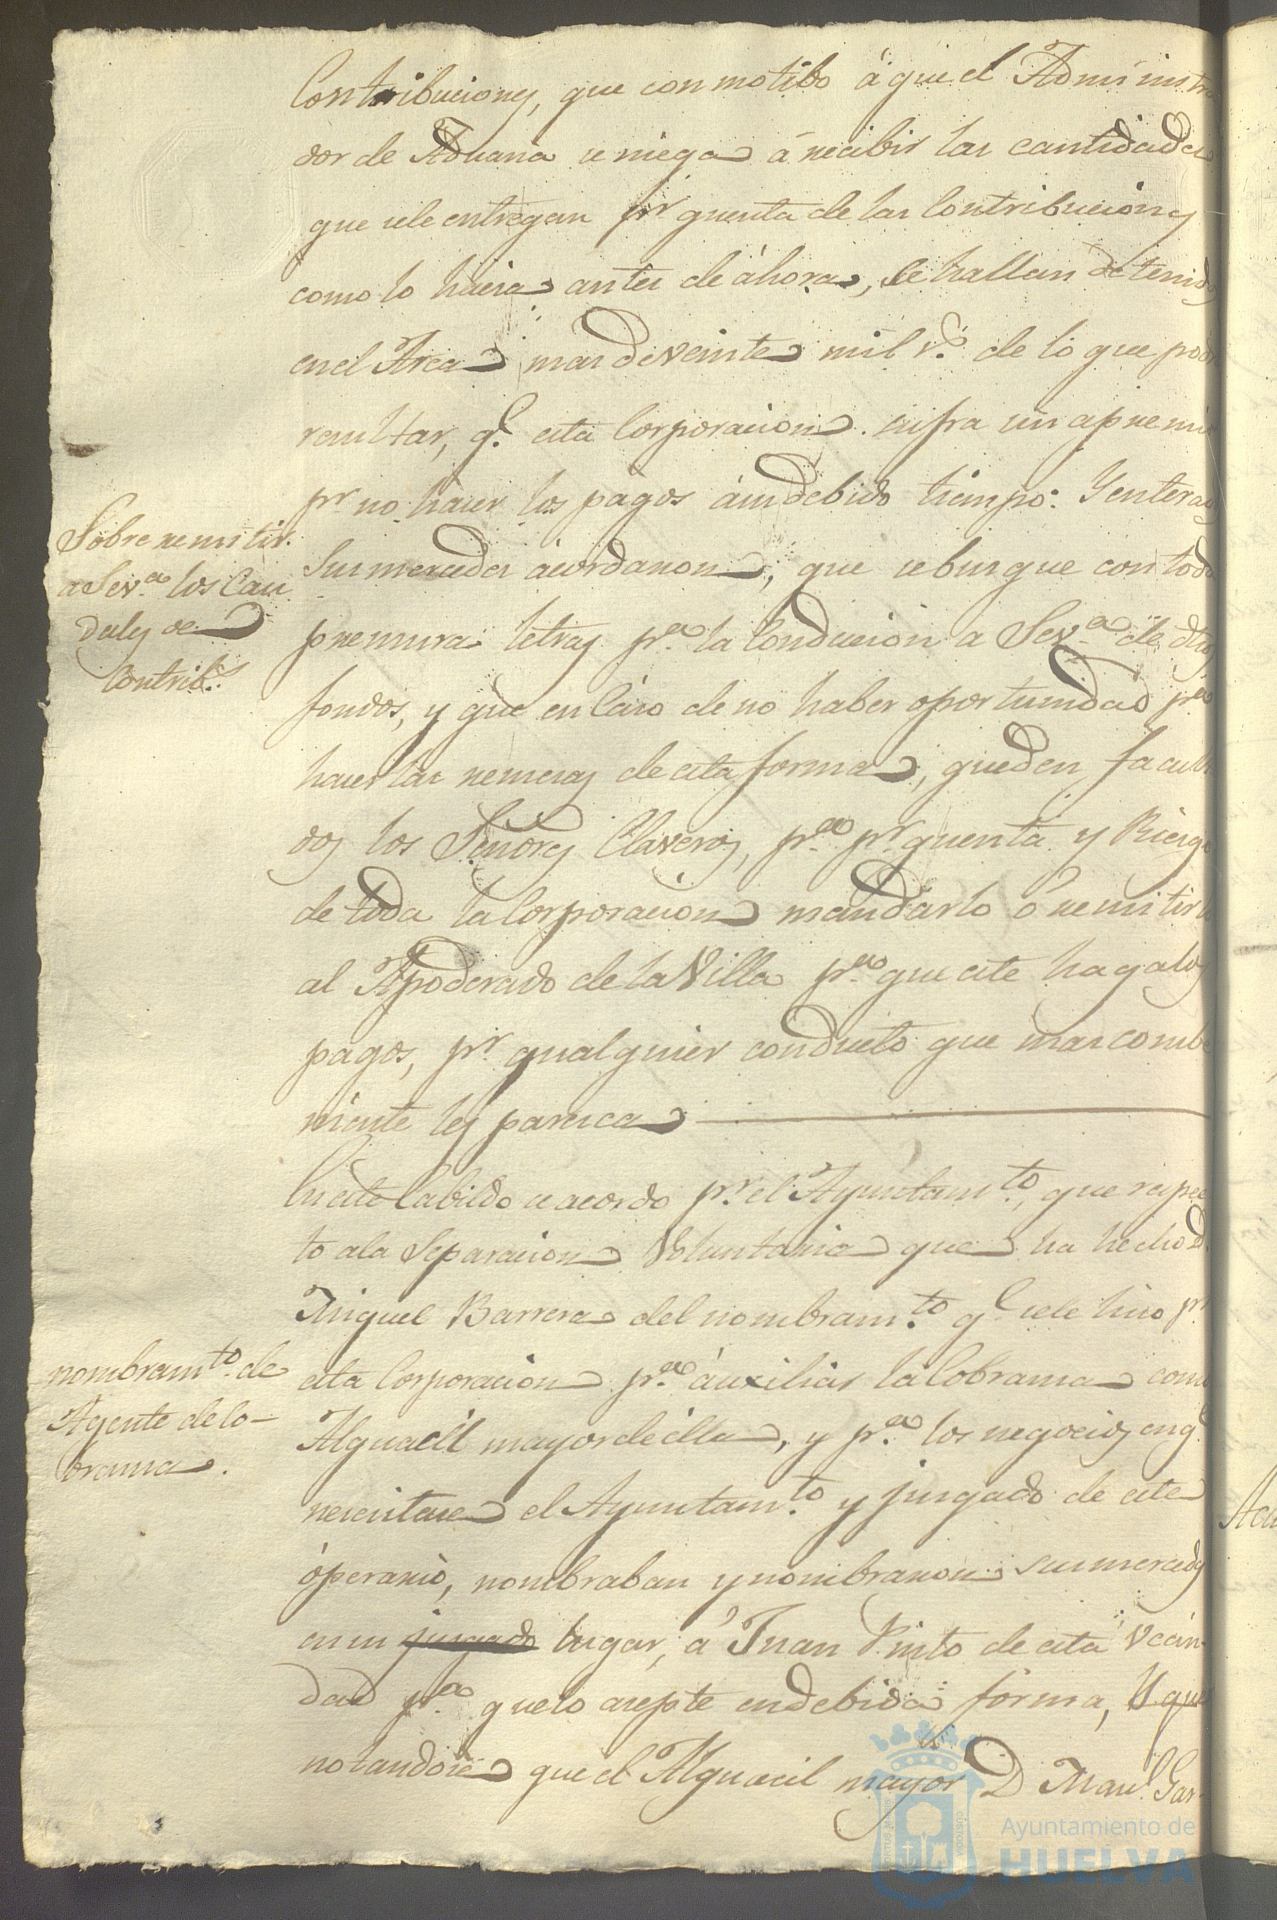 Contribuciones, que con motibo á que el Administra
dor de Aduana se niega á recibir las cantidades
que sele entregan pr quenta de las Contribuciones
como lo hacia antes de áhora, se hallan detenidos
en el Arca mas de veinte mil rs. de lo que podra
resultar, q.e esta Corporacion sufra un apremio
pr no hacer los pagos ásu debido tiempo: Y enterados
Sus mercedes acordaron, que se busque con toda
premura letras pr.a la Conducion a Sev.a de dhos
fondos, y que en Caso de no haber oportunidad pr.a
hacer las remesas de esta forma, queden faculta
dos los Señores Claveros, pr.a pr quenta y Riesgo
de toda la Corporacion mandarlo ó remitirlo
al Apoderado de la Villa pr.a que este haga los
pagos, pr qualquier conducto que mas combe
niente les paresca
Sobre remitir
a Sev.a los Cau
dales de
Contrib.s
En este Cabildo se acordo pr el Ayuntam.to, que respec
to ala Separacion Voluntaria que ha hecho D.
Miguel Barrera del nombram.to q.e sele hiso pr
esta Corporacion pr.a áuxiliar la Cobransa como
Alguacil mayor de ella, y pr.a los negocios en q.e
nesesitase el Ayuntam.to y jusgado de este
óperario, nombraban y nombraron sus mercedes
en su jusgado lugar, á Juan Pinto de esta Vecin-
dad pr.a que lo asepte en debida forma, Y que
notandose que el Alguacil mayor D Man.l Gar-
nombram.to de
Agente de Co-
bransa.
Ayuntamiento de
HUELVA